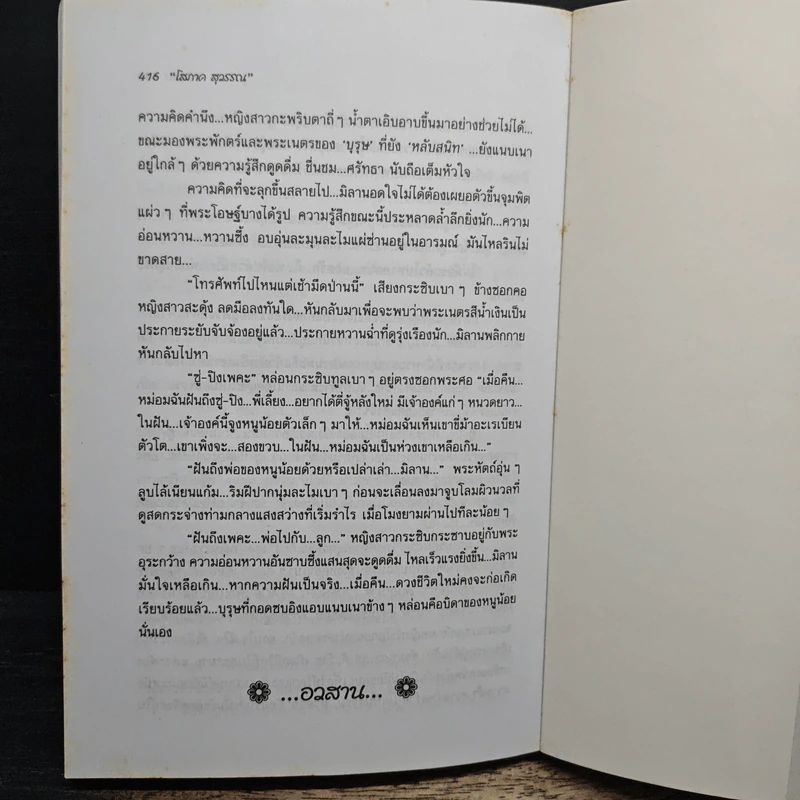 416 "โสภาค สุวรรณ"
ความคิดคำนึง...หญิงสาวกะพริบตาถี่ๆ น้ำตาเอิบอาบขึ้นมาอย่างช่วยไม่ได้...
ขณะมองพระพักตร์และพระเนตรของ 'บุรุษ' ที่ยัง 'หลับสนิท' ...ยังแนบเนา
อยู่ใกล้ๆ ด้วยความรู้สึกดูดดื่ม ชื่นชม...ศรัทธา นับถือเต็มหัวใจ
ความคิดที่จะลุกขึ้นสลายไป...มิลานอดใจไม่ได้ต้องเผยอตัวขึ้นจุมพิต
แผ่วๆ ที่พระโอษฐ์บางได้รูป ความรู้สึกขณะนี้ประหลาดล้ำลึกยิ่งนัก...ความ
อ่อนหวาน...หวานซึ้ง อบอุ่นละมุนละไมแผ่ซ่านอยู่ในอารมณ์ มันไหลรินไม่
ขาดสาย...
"โทรศัพท์ไปไหนแต่เช้ามืดป่านนี้" เสียงกระซิบเบาๆ ข้างซอกคอ
หญิงสาวสะดุ้ง ลดมือลงทันใด...หันกลับมาเพื่อจะพบว่าพระเนตรสีน้ำเงินเป็น
ประกายระยับจับจ้องอยู่แล้ว...ประกายหวานฉ่ำที่ดูรุ่งเรืองนัก...มิลานพลิกกาย
หันกลับไปหา
"ซู่-ปิงเพคะ" หล่อนกระซิบทูลเบาๆ อยู่ตรงซอกพระศอ "เมื่อคืน...
หม่อมฉันฝันถึงซู่-ปิง...พี่เลี้ยง...อยากได้ตี่จู้หลังใหม่ มีเจ้าองค์แก่ๆ หนวดยาว...
ในฝัน...เจ้าองค์นี้จูงหนูน้อยตัวเล็กๆ มาให้...หม่อมฉันเห็นเขาขี่ม้าอะเรเบียน
ตัวโต...เขาเพิ่งจะ...สองขวบ...ในฝัน...หม่อมฉันเป็นห่วงเขาเหลือเกิน..."
"ฝันถึงพ่อของหนูน้อยด้วยหรือเปล่าเล่า...มิลาน..." พระหัตถ์อุ่นๆ
ลูบไล้เนียนแก้ม...ริมฝีปากนุ่มละไมเบาๆ ก่อนจะเลื่อนลงมาจูบโลมผิวนวลที่
ดูสดกระจ่างท่ามกลางแสงสว่างที่เริ่มรำไร เมื่อโมงยามผ่านไปทีละน้อยๆ
"ฝันถึงเพคะ...พ่อไปกับ...ลูก..." หญิงสาวกระซิบกระซาบอยู่กับพระ
อุระกว้าง ความอ่อนหวานอันซาบซึ้งแสนสุดจะดูดดื่ม ไหลเร็วแรงยิ่งขึ้น...มิลาน
มั่นใจเหลือเกิน...หากความฝันเป็นจริง...เมื่อคืน...ดวงชีวิตใหม่คงจะก่อเกิด
เรียบร้อยแล้ว...บุรุษที่กอดซบอิงแอบแนบเนาข้างๆ หล่อนคือบิดาของหนูน้อย
นั่นเอง
...อวสาน...